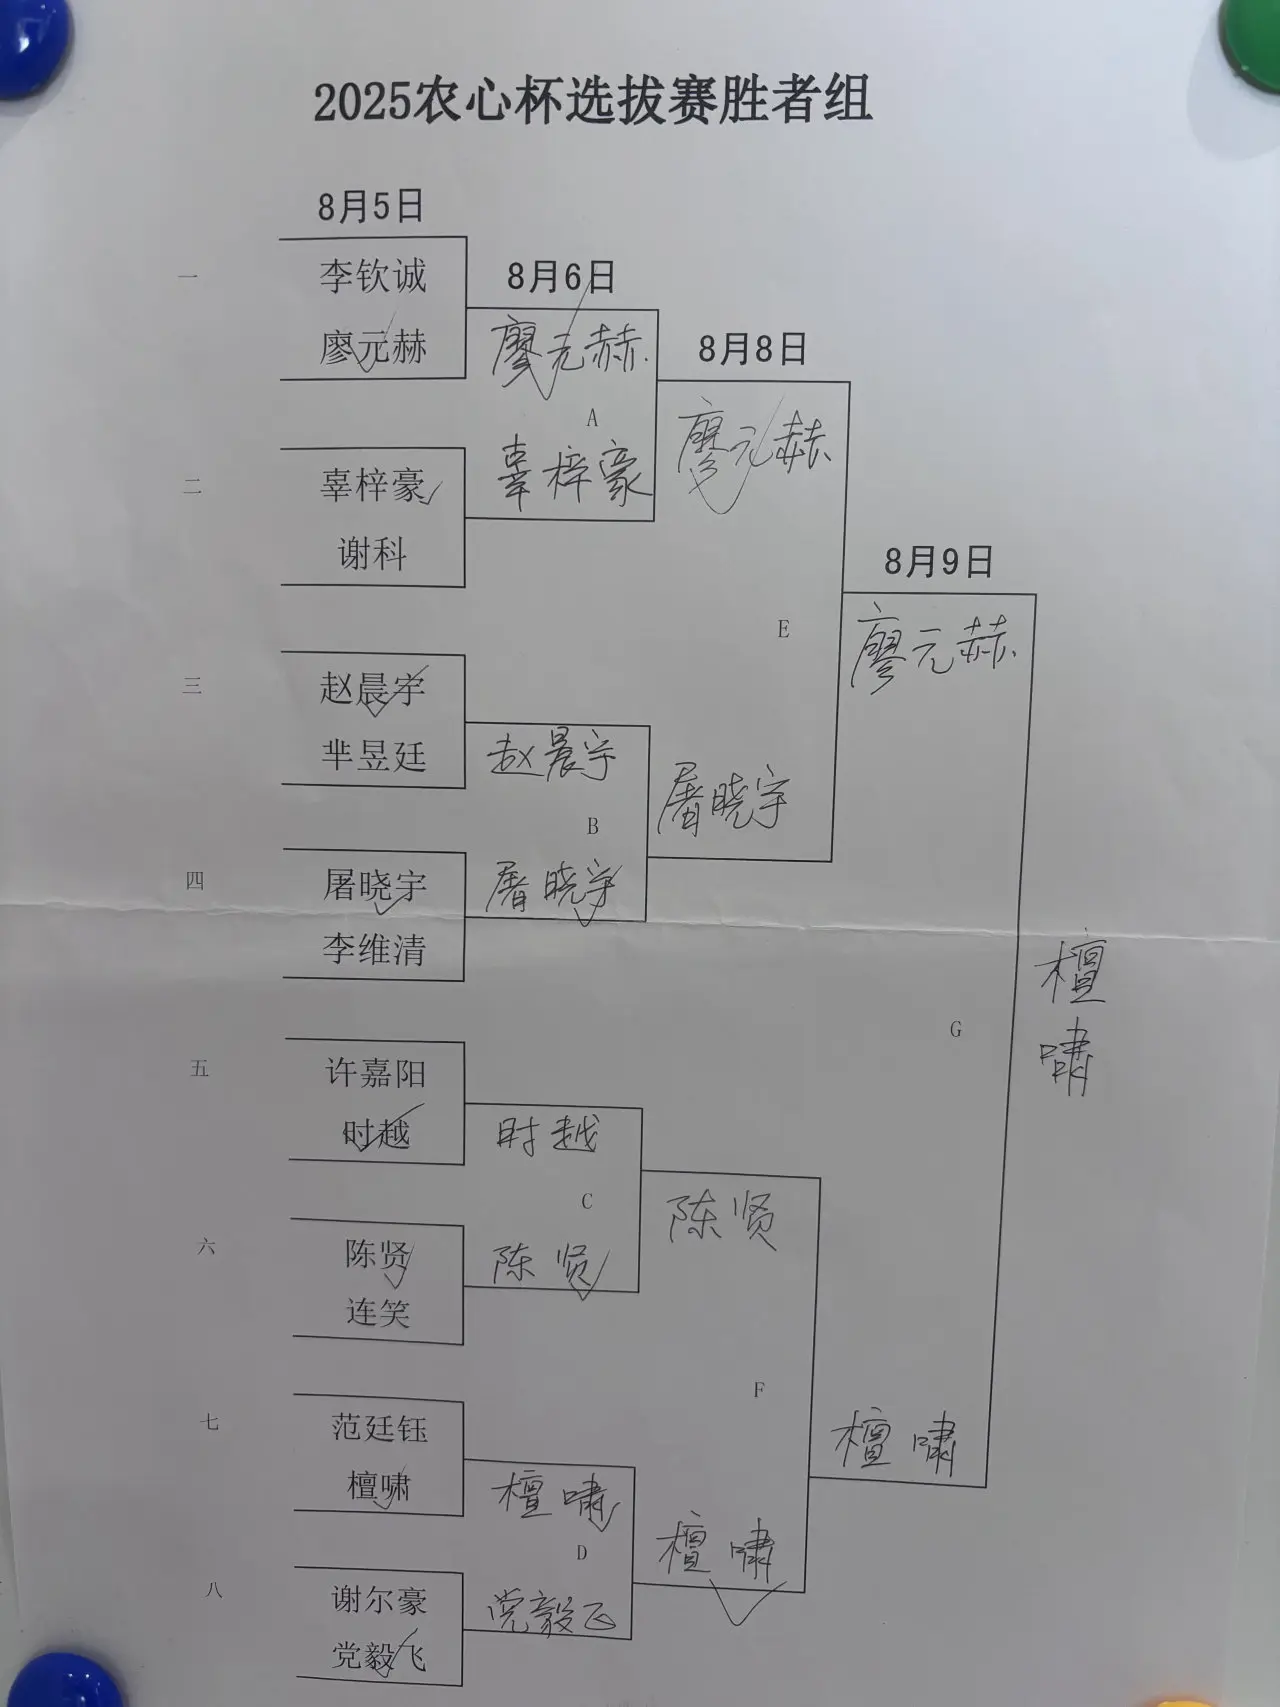 2025农心杯选拔赛胜者组
8月5日
一
李钦诚
廖元赫
二
辜梓豪
谢科
三
赵晨宇
芈昱廷
四
屠晓宇
李维清
五
许嘉阳
时越
六
陈贤
连笑
七
范廷钰
檀啸
八
谢尔豪
党毅飞
8月6日
廖元赫
A
辜梓豪
赵晨宇
B
屠晓宇
时越
C
陈贤
檀啸
D
党毅飞
8月8日
廖元赫
E
屠晓宇
陈贤
F
檀啸
8月9日
廖元赫
G
檀啸
檀
啸